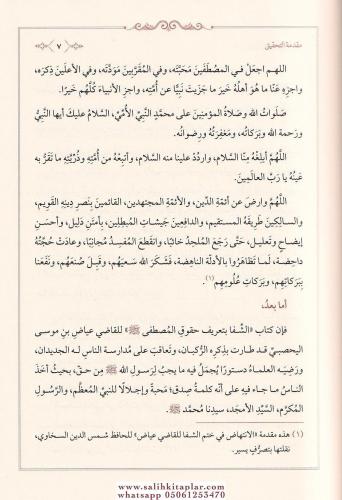 مقدمة التحقيق
٧
اللهم اجعَلْ في المصطَفَينَ مَحبَّتَه، وفي المقرَّبينَ مَودَّتَه، وفي الأعلَينَ ذِكرَه،
واجزِه عنَّا ما هو أهلُه خيرَ ما جَزَيتَ نبيًّا عن أُمَّتِه، واجزِ الأنبياءَ كلَّهم خَيرًا.
صَلَواتُ الله وصَلاةُ المؤمنينَ على محمَّدٍ النَّبيِّ الأُمِّيِّ، السَّلامُ عليكَ أيها النَّبيُّ
ورَحمة الله وبَرَكاتُه، ومَغفِرَتُه ورِضوانُه.
اللَّهُمَّ أبلِغْهُ مِنَّا السَّلام، واردُدْ علينا منه السَّلام، وأَتبِعْهُ من أُمَّتِه وذُرِّيَّتِه ما تَقَرُّ به
عَينُهُ يا رَبَّ العالَمِينَ.
اللَّهُم وارضَ عن أئمَّةِ الدِّين، والأئمَّةِ المجتهدين، القائمينَ بنَصرِ دِينِهِ القَوِيم،
والسالِكِينَ طَرِيقَهُ المستقيم، والدافِعِينَ جَيشاتِ المُبطِلين، بأمتَنِ دَليل، وأحسَنِ
إيضاحٍ وتعليل، حَتَّى رَجَعَ المُلحِدُ خائبًا، وانقَطَعَ المُفسِدُ مُجانِبًا، وعادَتْ حُجَّتُهُ
داحِضة، لَما تَظاهَرُوا بالأدلَّةِ الناهِضة، فَشَكَرَ الله سَعيَهُم، وقَبِلَ صُنعَهُم، ونَفَعَنا
بِبَرَكاتِهِم، وبَرَكاتِ عُلُومِهِم(١).
أما بعدُ،
فإن كتاب «الشِّفا بتعريف حقوقِ المُصطفى ﷺ» للقاضي عياضِ بنِ موسى
اليحصبيِّ قد طارت بذِكرِه الرُّكبان، وتَعاقَبَ على مُدارسةِ الناسِ له الجديدان،
ورَضِيَه العلماءُ دستورًا يُجمَلُ فيه ما يجبُ لرَسولِ الله ﷺ مِن حقّ، بحيثُ أخَذَ
الناسُ ما جاء فيه على أنَّه كلمةُ صِدق؛ مَحبةً وإجلالًا للنبيِّ المُعظَّم، والرَّسُولِ
المُكرَّم، السَّيِّدِ الأمجَد، سيدِنا مُحمَّد ﷺ.
(١) هذه مقدمة «الانتهاض في ختم الشفا للقاضي عياض» للحافظ شمس الدين السخاوي،
نقلتها بتصرُّفٍ يسير.
www.salihkitaplar.com
whatsapp 05061253470